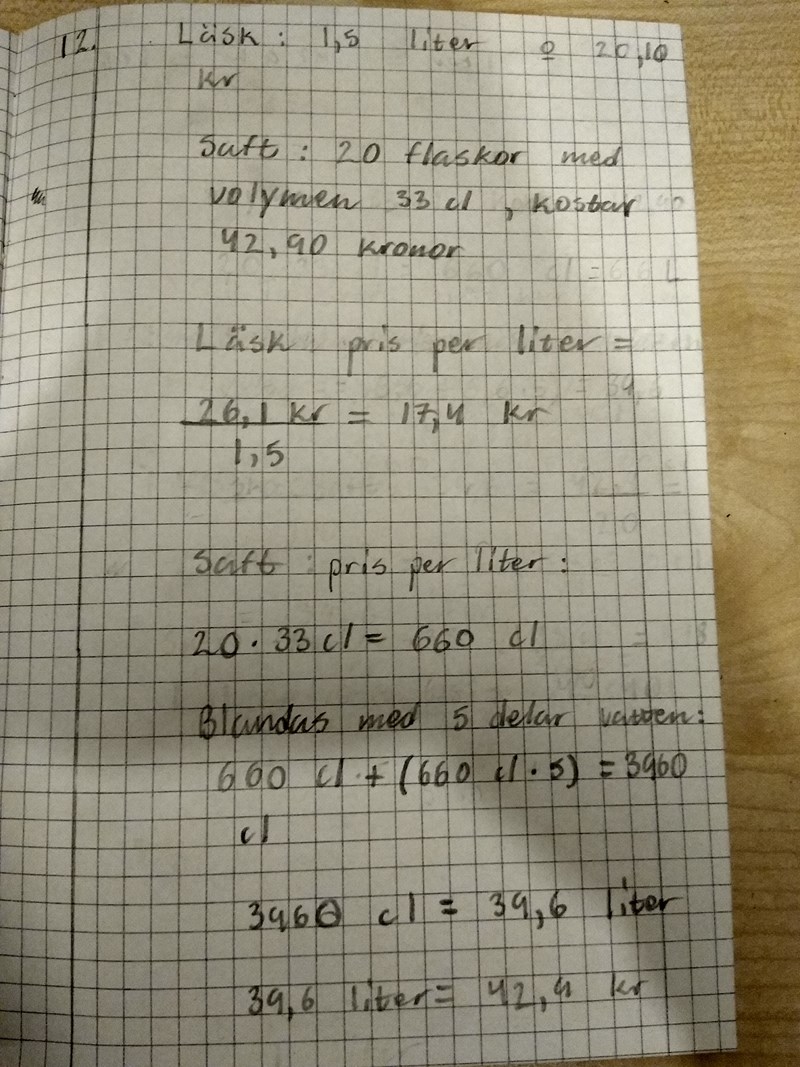 12. Läsk: 1,5 liter à 26,10
kr
Saft: 20 flaskor med
volymen 33 cl, kostar
42,90 kronor
Läsk: pris per liter =
26,1 kr = 17,4 kr
1,5
Saft: pris per liter:
20 · 33 cl = 660 cl
Blandas med 5 delar vatten:
660 cl + (660 cl · 5) = 3960
cl
3960 cl = 39,6 liter
39,6 liter = 42,9 kr